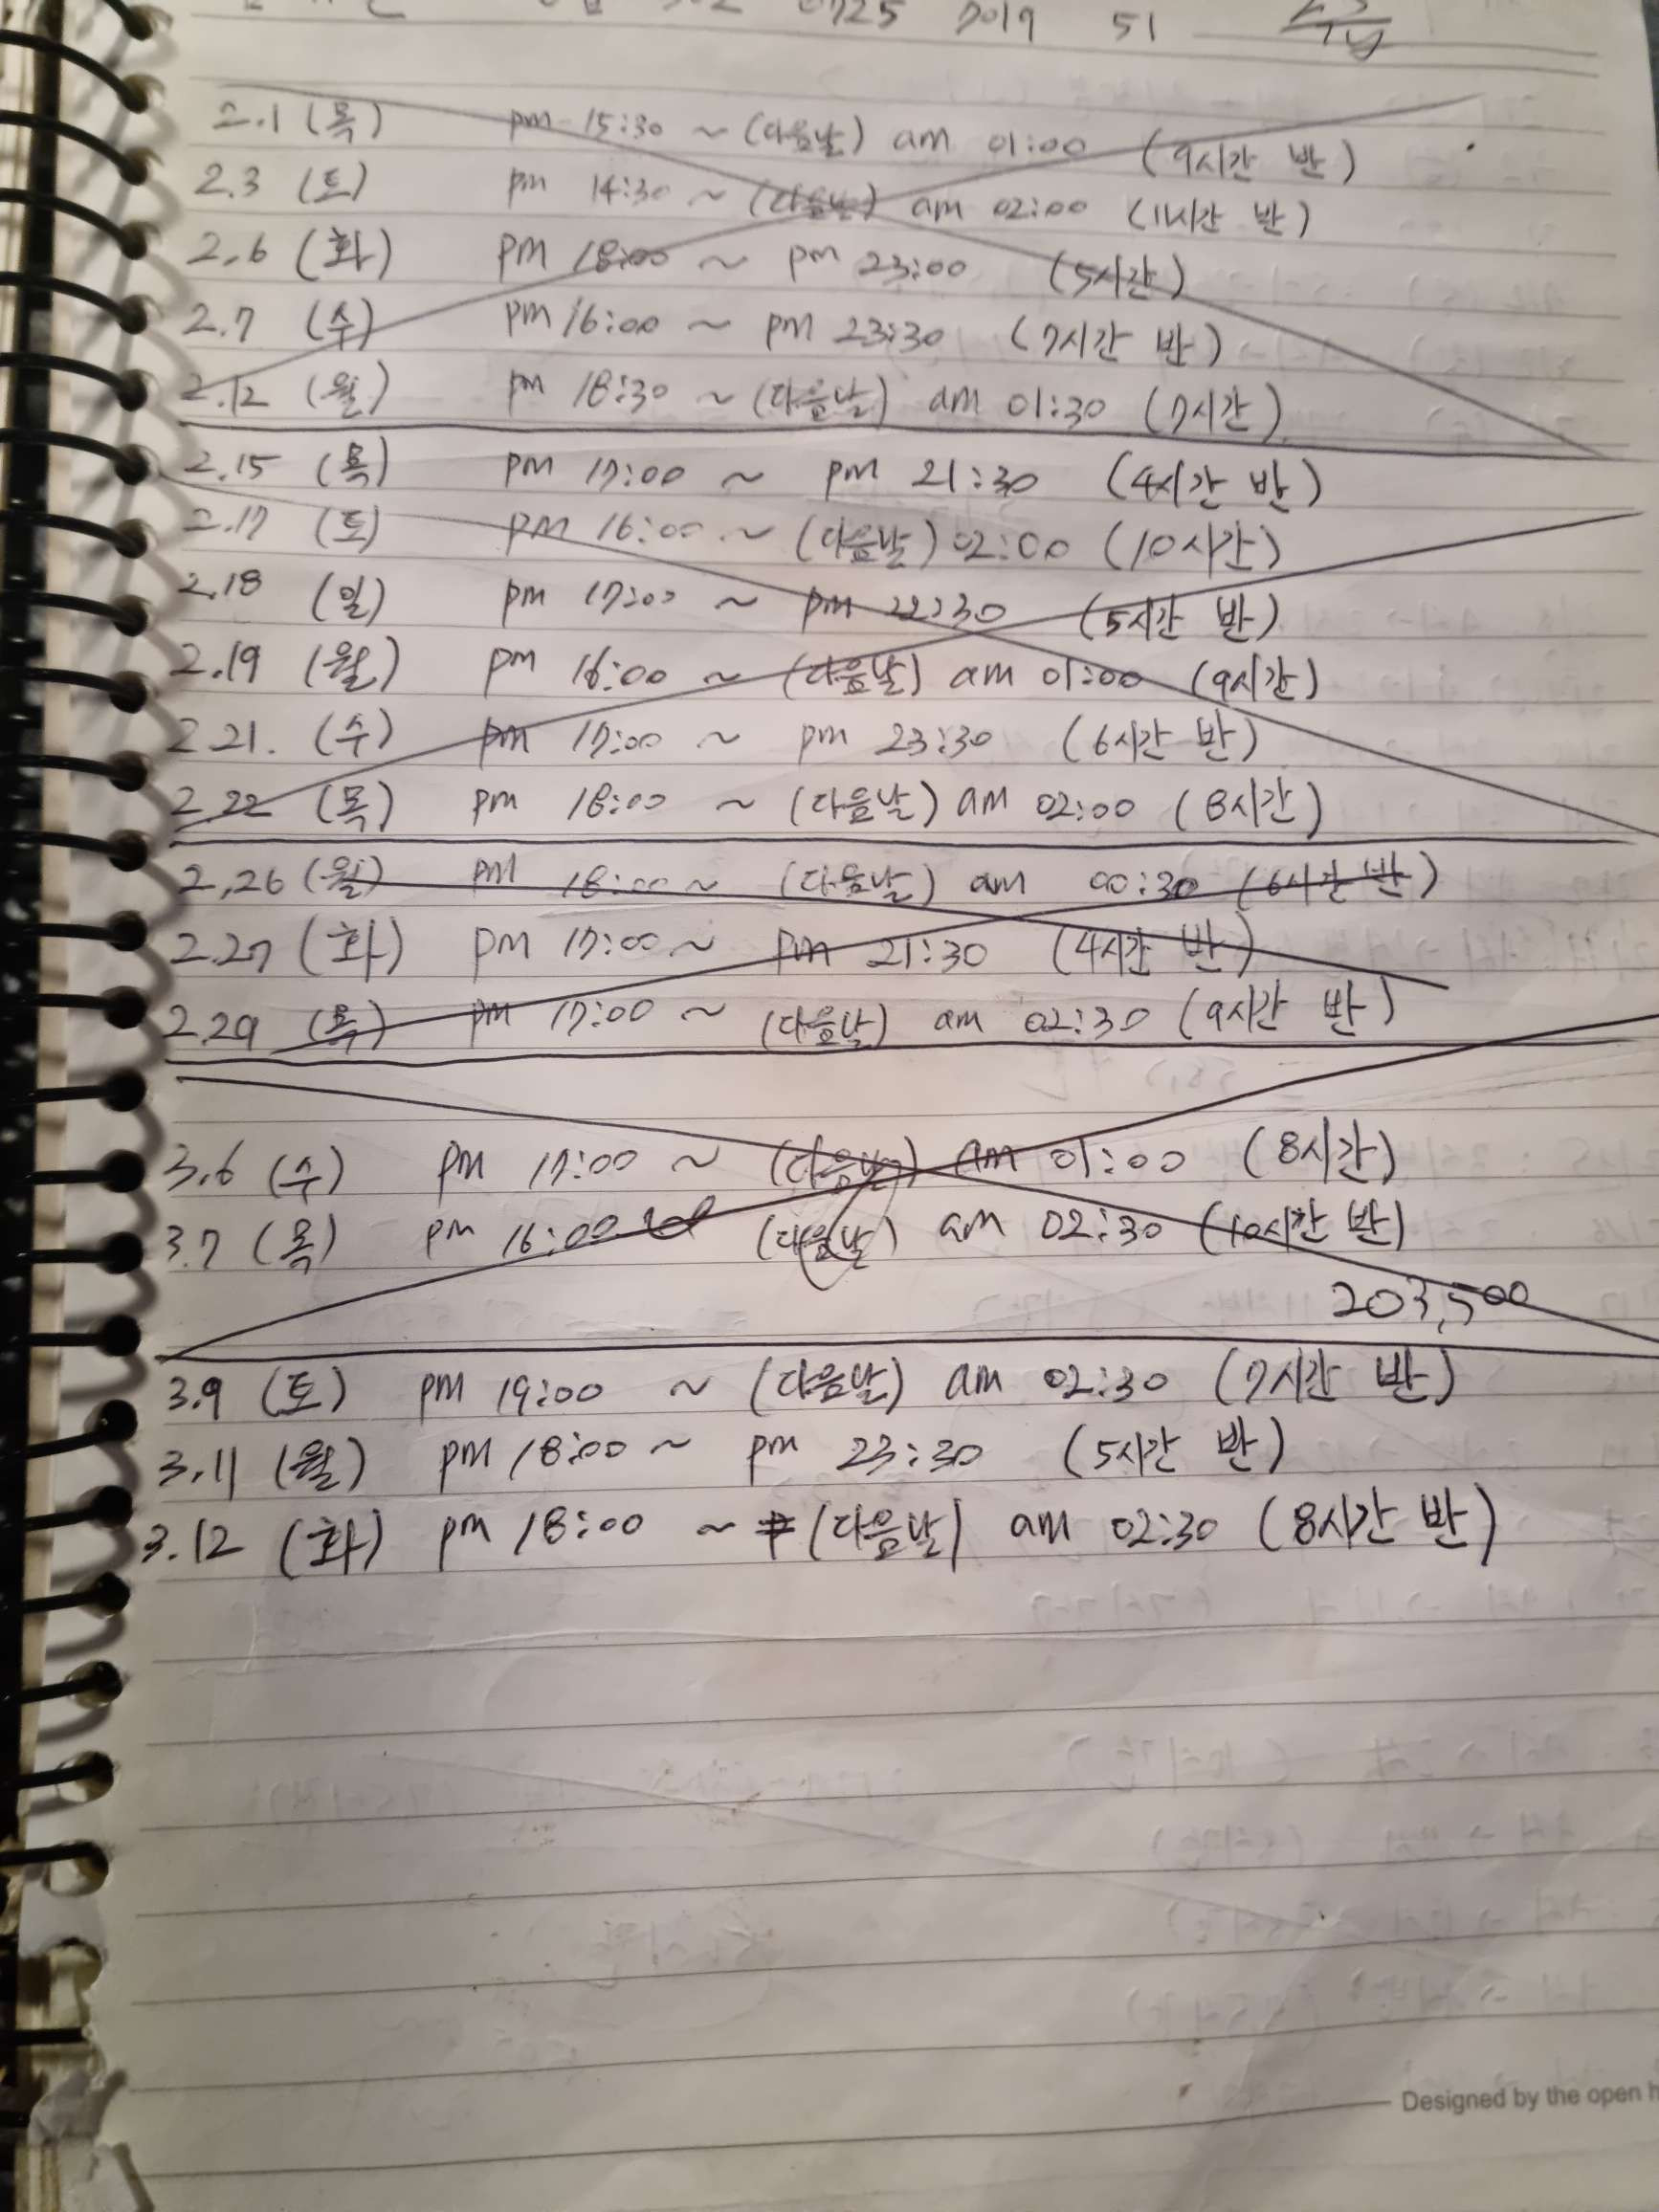 0725 7019 51
2.1 (목) pm 15:30 ~ (다음날) am 01:00 (9시간 반)
2.3 (토) pm 14:30 ~ (다음날) am 02:00 (11시간 반)
2.6 (화) pm 18:00 ~ pm 23:00 (5시간)
2.7 (수) pm 16:00 ~ pm 23:30 (7시간 반)
2.12 (월) pm 18:30 ~ (다음날) am 01:30 (7시간)
2.15 (목) pm 17:00 ~ pm 21:30 (4시간 반)
2.17 (토) pm 16:00 ~ (다음날) 02:00 (10시간)
2.18 (일) pm 17:00 ~ pm 22:30 (5시간 반)
2.19 (월) pm 16:00 ~ (다음날) am 01:00 (9시간)
2.21. (수) pm 17:00 ~ pm 23:30 (6시간 반)
2.22 (목) pm 18:00 ~ (다음날) am 02:00 (8시간)
2.26 (월) pm 18:00 ~ (다음날) am 00:30 (6시간 반)
2.27 (화) pm 17:00 ~ pm 21:30 (4시간 반)
2.29 (목) pm 17:00 ~ (다음날) am 02:30 (9시간 반)
3.6 (수) pm 17:00 ~ (다음날) am 01:00 (8시간)
3.7 (목) pm 16:00 (다음날) am 02:30 (10시간 반)
203,500
3.9 (토) pm 19:00 ~ (다음날) am 02:30 (7시간 반)
3.11 (월) pm 18:00 ~ pm 23:30 (5시간 반)
3.12 (화) pm 18:00 ~ (다음날) am 02:30 (8시간 반)
Designed by the open h